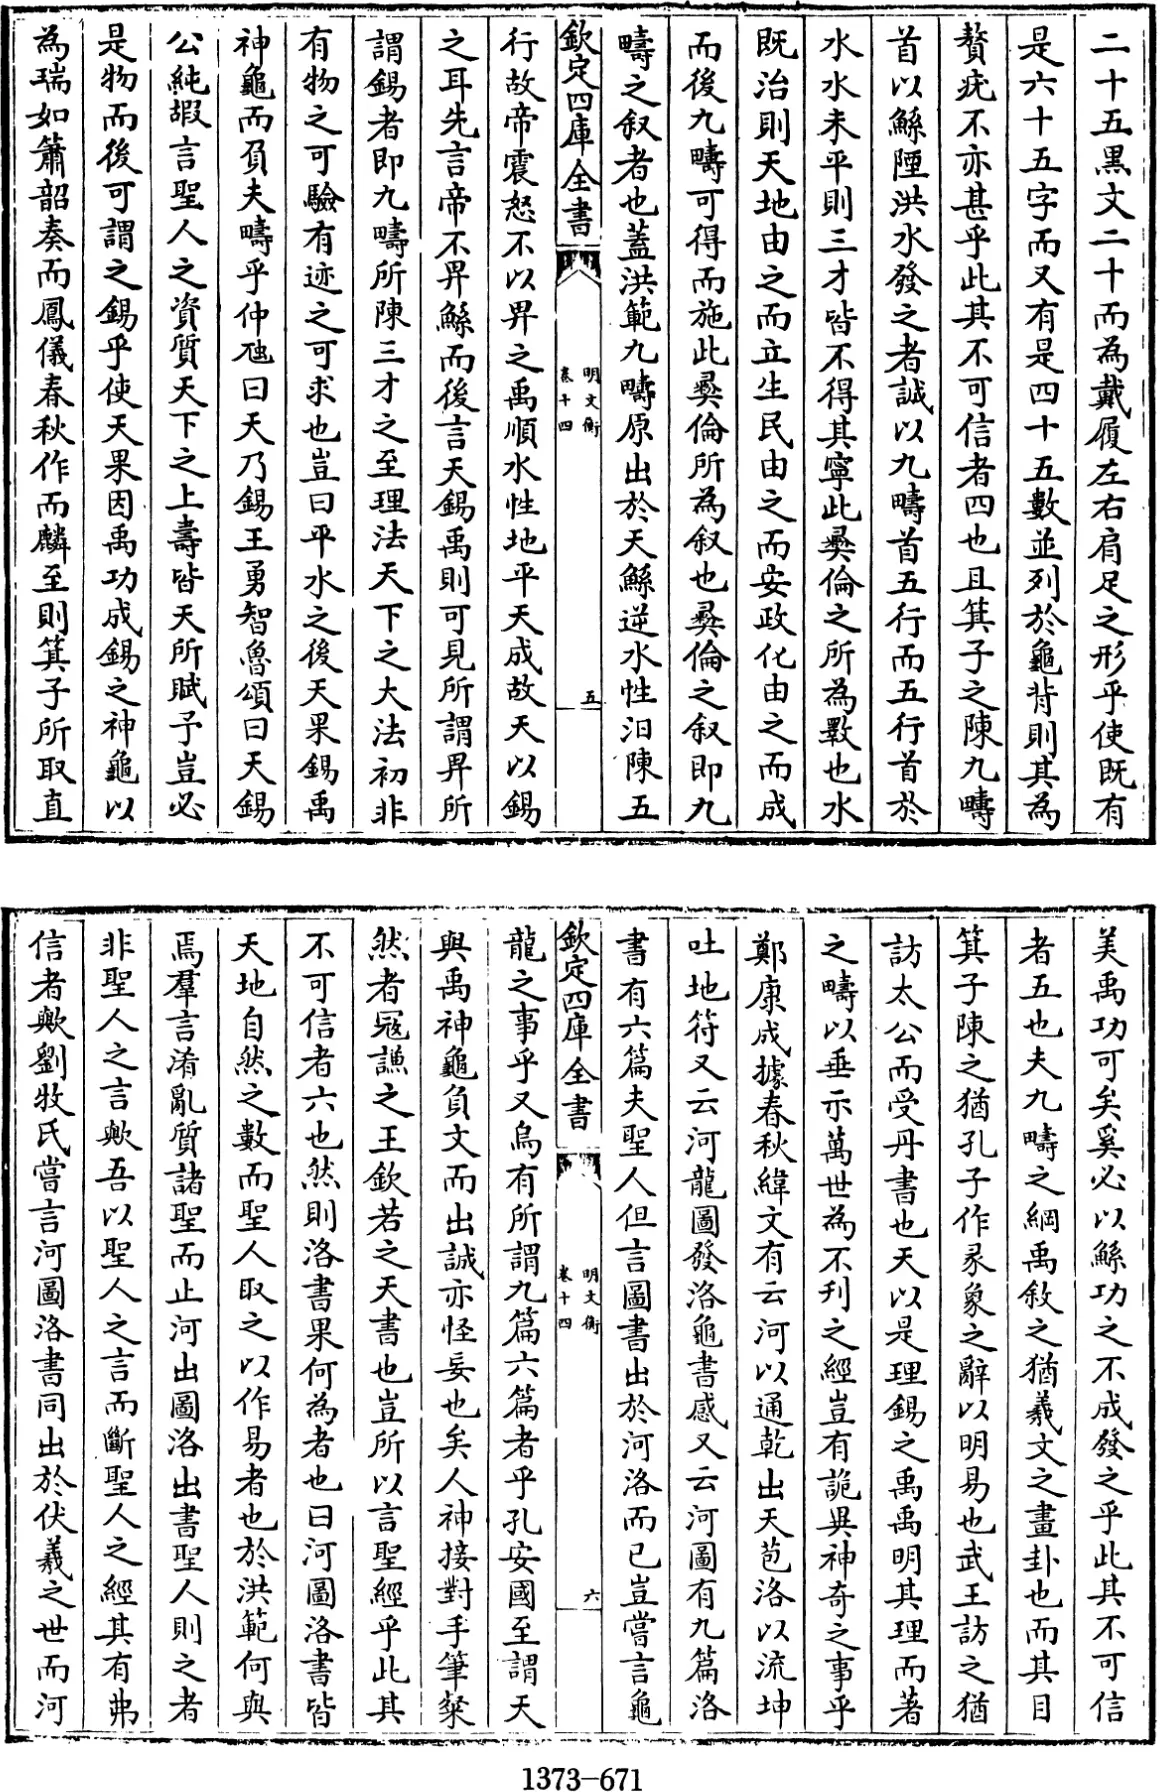 二十五黑文二十而為戴履左右肩足之形乎使既有
是六十五字而又有是四十五數並列於龜背則其為
贅疣不亦甚乎此其不可信者四也且箕子之陳九疇
首以鯀陻洪水發之者誠以九疇首五行而五行首於
水水未平則三才皆不得其寧此彝倫之所為斁也水
既治則天地由之而立生民由之而安政化由之而成
而後九疇可得而施此彝倫所為叙也彝倫之叙即九
疇之叙者也蓋洪範九疇原出於天鯀逆水性汩陳五
欽定四庫全書
明文衡
卷十四
五
行故帝震怒不以畀之禹順水性地平天成故天以錫
之耳先言帝不畀鯀而後言天錫禹則可見所謂畀所
謂錫者即九疇所陳三才之至理法天下之大法初非
有物之可驗有迹之可求也豈曰平水之後天果錫禹
神龜而負夫疇乎仲虺曰天乃錫王勇智魯頌曰天錫
公純嘏言聖人之資質天下之上壽皆天所賦予豈必
是物而後可謂之錫乎使天果因禹功成錫之神龜以
為瑞如簫韶奏而鳳儀春秋作而麟至則箕子所取直
美禹功可矣奚必以鯀功之不成發之乎此其不可信
者五也夫九疇之綱禹敘之猶羲文之畫卦也而其目
箕子陳之猶孔子作彖象之辭以明易也武王訪之猶
訪太公而受丹書也天以是理錫之禹禹明其理而著
之疇以垂示萬世為不刋之經豈有詭異神奇之事乎
鄭康成據春秋緯文有云河以通乾出天苞洛以流坤
吐地符又云河龍圖發洛龜書感又云河圖有九篇洛
書有六篇夫聖人但言圖書出於河洛而已豈嘗言龜
欽定四庫全書
明文衡
卷十四
六
龍之事乎又烏有所謂九篇六篇者乎孔安國至謂天
與禹神龜負文而出誠亦怪妄也矣人神接對手筆粲
然者寇謙之王欽若之天書也豈所以言聖經乎此其
不可信者六也然則洛書果何為者也曰河圖洛書皆
天地自然之數而聖人取之以作易者也於洪範何與
焉羣言淆亂質諸聖而止河出圖洛出書聖人則之者
非聖人之言歟吾以聖人之言而斷聖人之經其有弗
信者歟劉牧氏嘗言河圖洛書同出於伏羲之世而河
1373-671